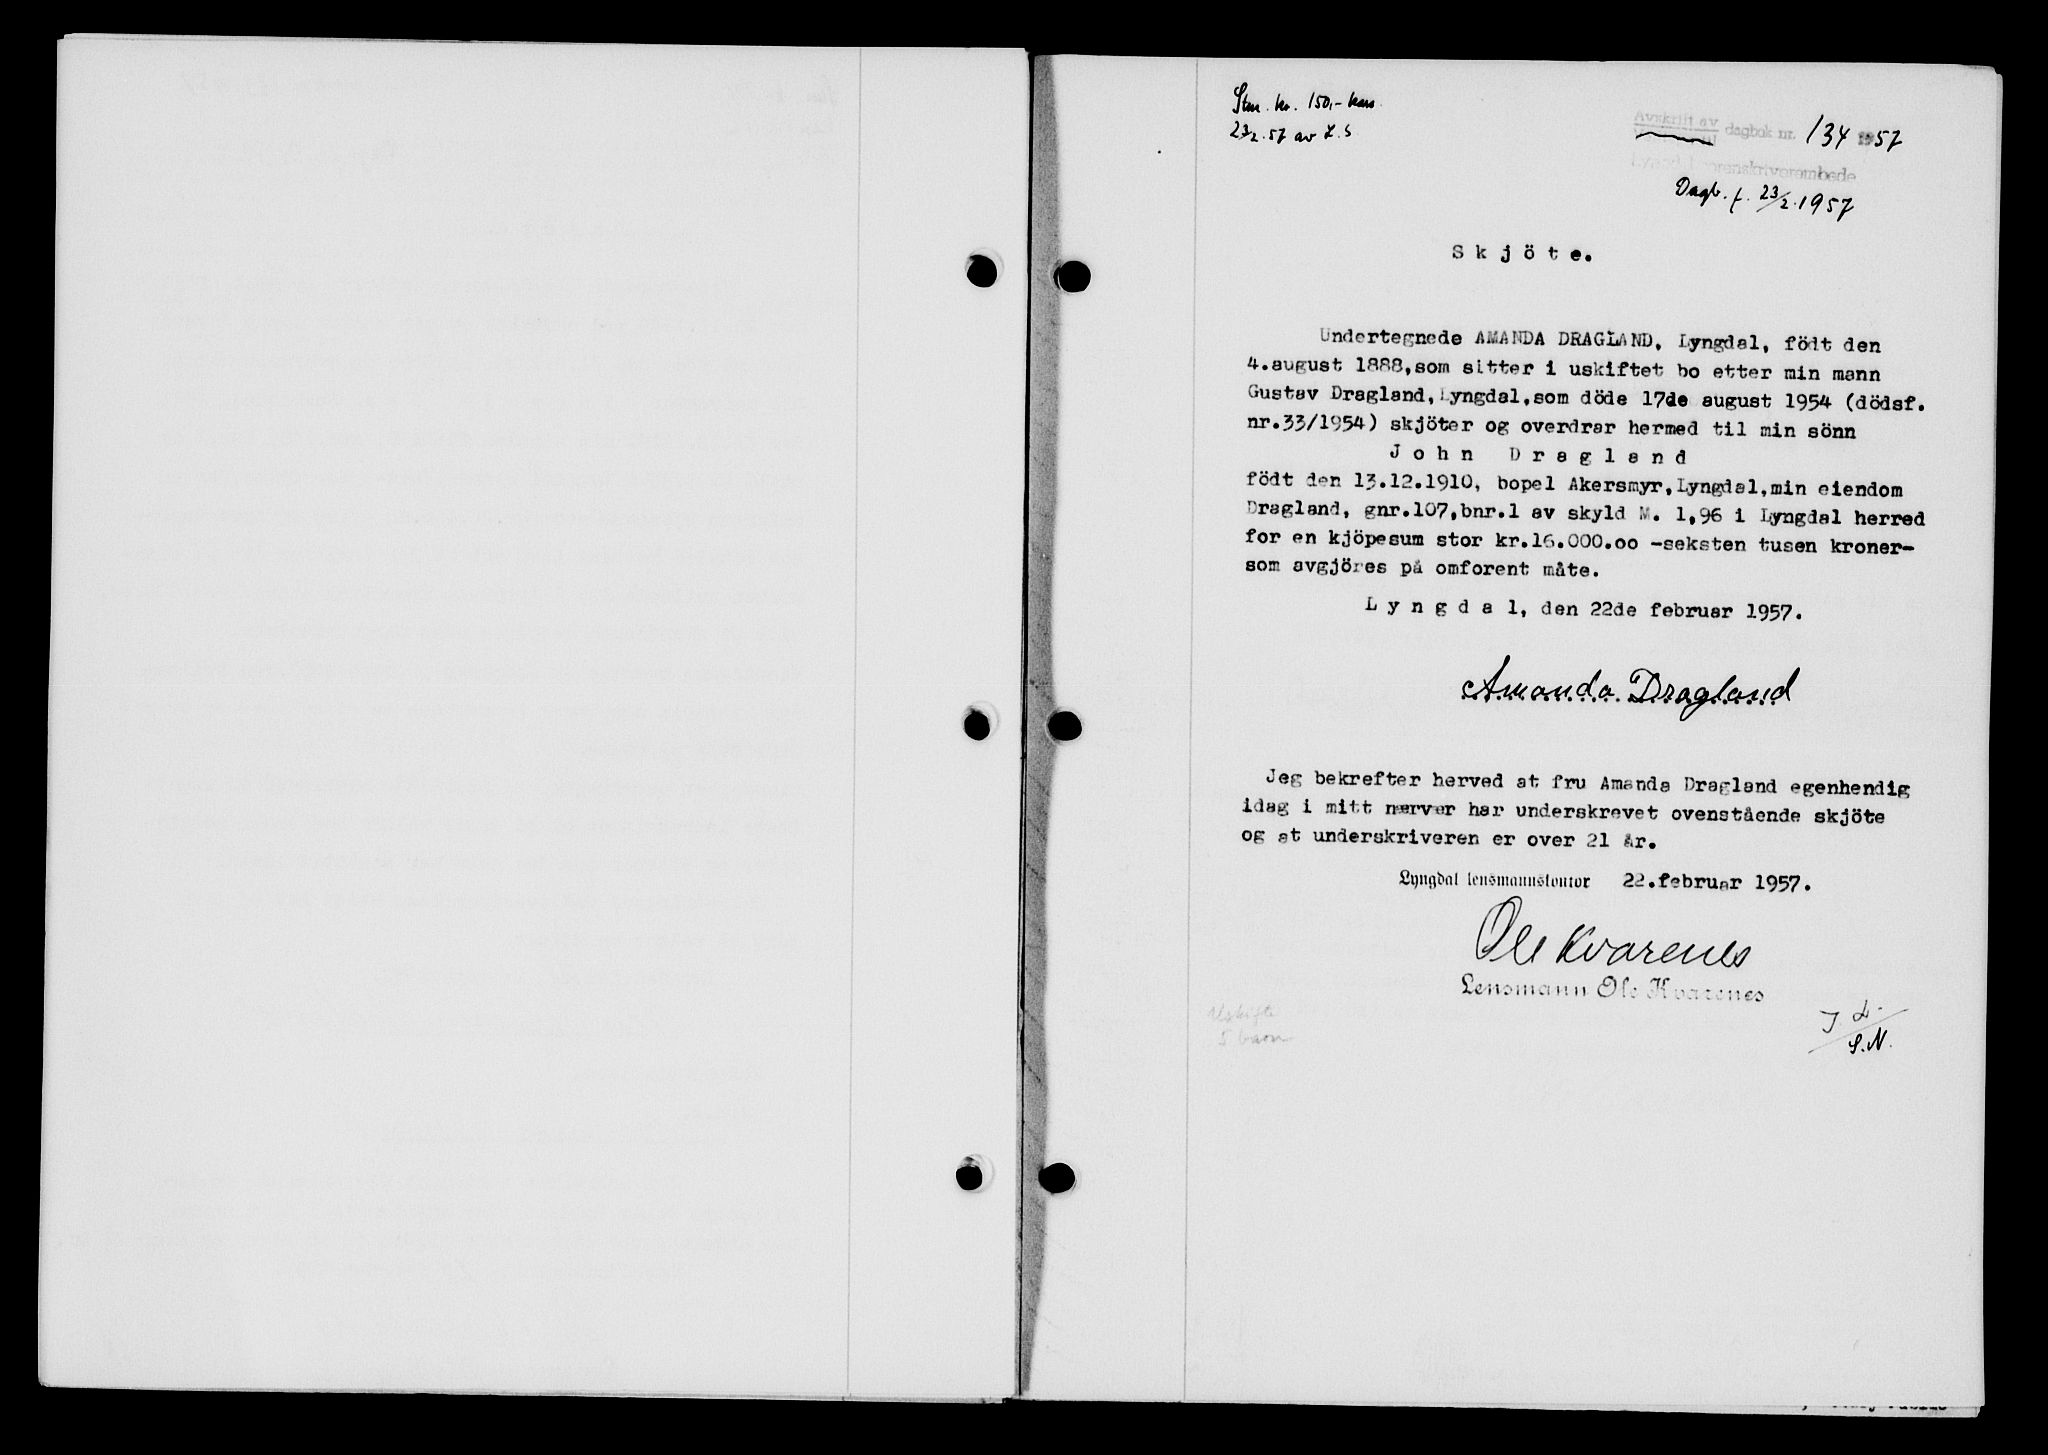 Stm. kr. 150,- kass.
23/2.57 av L.S
Avskrift av dagbok nr. 134 1957
orenskriverembede
Dagb. f. 23/2.1957
Skjöte.
Undertegnede AMANDA DRAGLAND, Lyngdal, födt den
4.august 1888,som sitter i uskiftet bo etter min mann
Gustav Dragland,Lyngdal,som döde 17de august 1954 (dödsf.
nr.33/1954) skjöter og overdrar hermed til min sönn
John Dragland
födt den 13.12.1910, bopel Akersmyr,Lyngdal,min eiendom
Dragland, gnr.107,bnr.1 av skyld M. 1,96 i Lyngdal herred
for en kjöpesum stor kr.16.000.oo -seksten tusen kroner-
som avgjöres på omforent måte.
Lyngdal, den 22de februar 1957.
Amanda Dragland
Jeg bekrefter herved at fru Amanda Dragland egenhendig
idag i mitt nærvær har underskrevet ovenstående skjöte
og at underskriveren er over 21 år.
Lyngdal lensmannskontor 22.februar 1957.
Ole Kvarenes
Lensmann Ole Kvarenes
Uskifte
5 barn
J. L.
S.N.